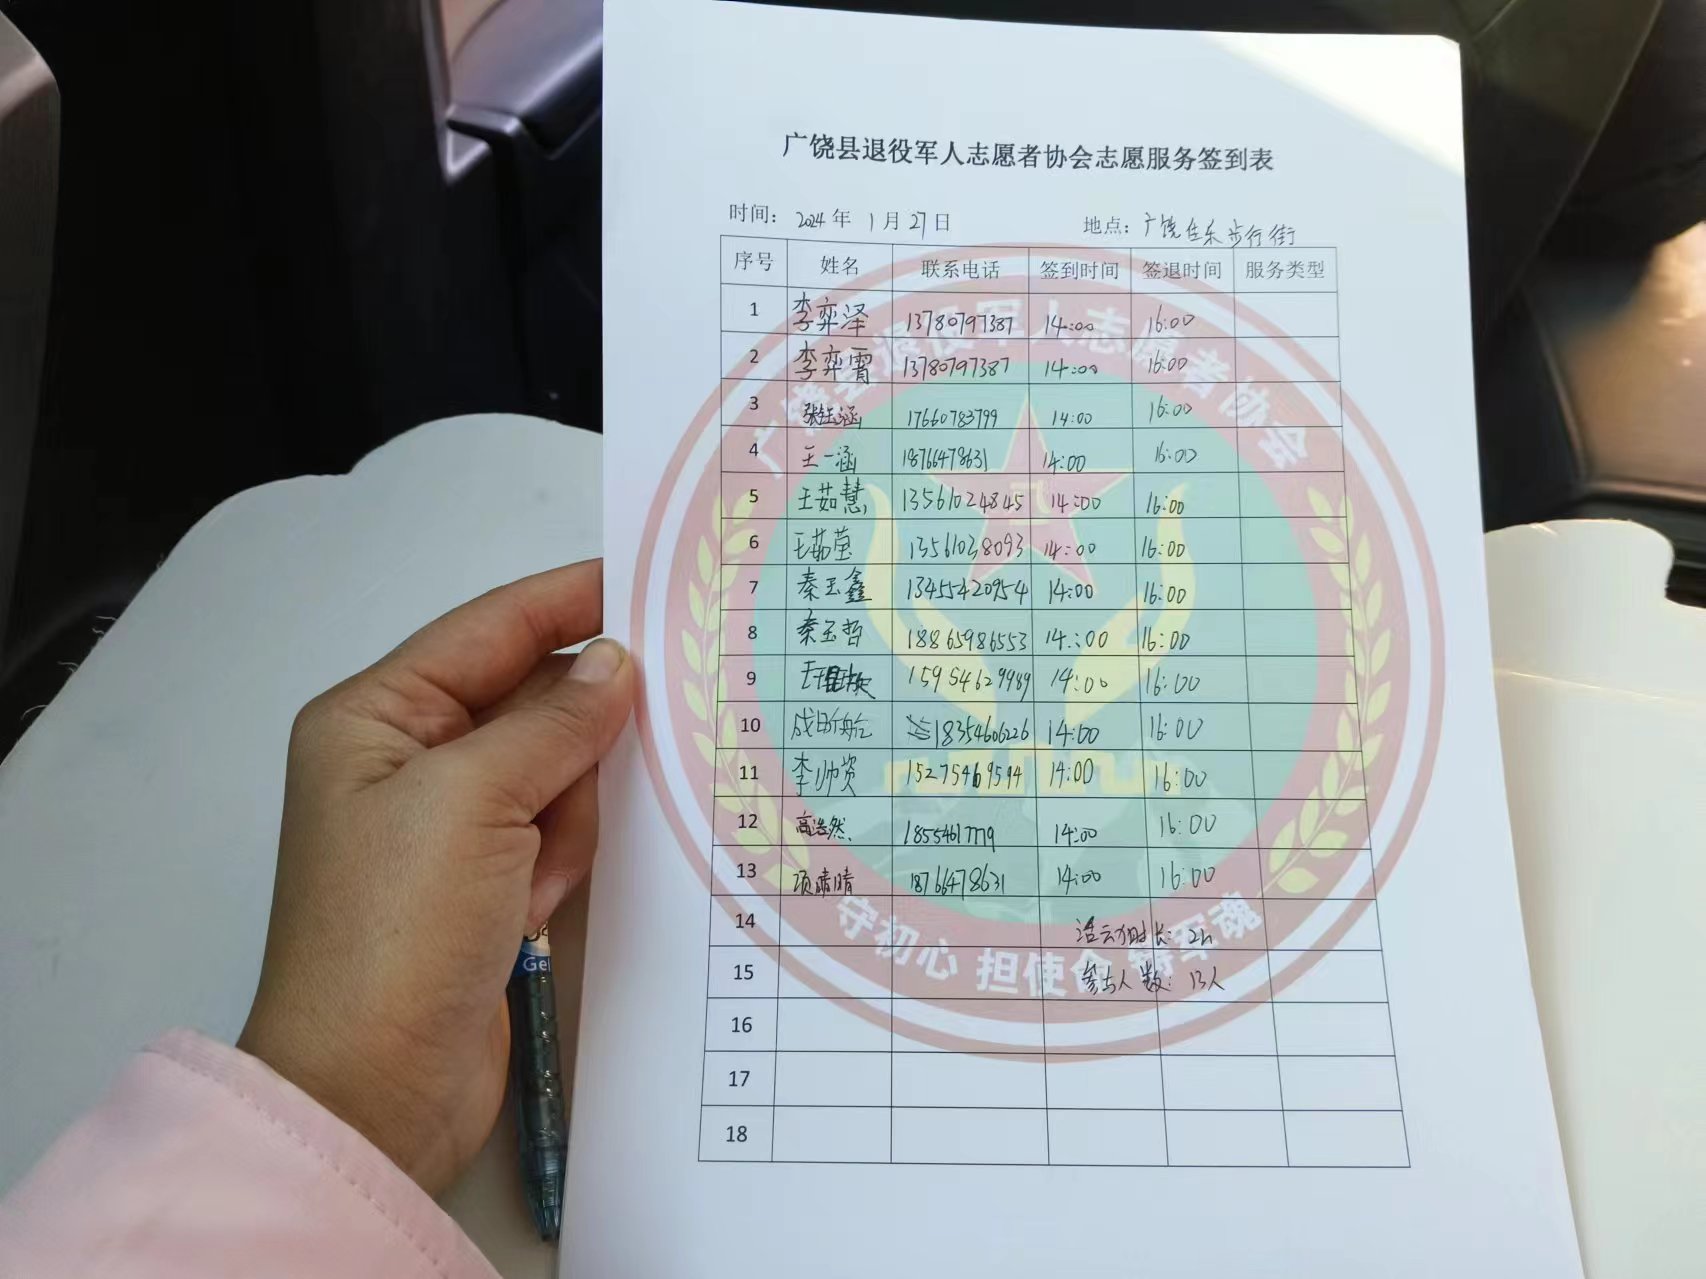 广饶县退役军人志愿者协会志愿服务签到表
时间： 2024 年 1 月 27 日 地点：广饶 乐步行街
序号 姓名 联系电话 签到时间 签退时间 服务类型
1 李弈泽 13780797387 14:00 16:00
2 李弈霄 13780797387 14:00 16:00
3 张钰涵 17660783799 14:00 16:00
4 王一涵 18766478631 14:00 16:00
5 王茹慧 13561024845 14:00 16:00
6 王茹莹 13561038093 14:00 16:00
7 秦玉鑫 13455420954 14:00 16:00
8 秦玉哲 18865986553 14:00 16:00
9 王 15954629989 14:00 16:00
10 成昕航 18354606226 14:00 16:00
11 李帅资 15275469594 14:00 16:00
12 高浩然 18554617779 14:00 16:00
13 项晴晴 18766478631 14:00 16:00
14 活动时长：2h
15 参与人数：13人
16
17
18
广饶县退役军人志愿者协会
八一
守初心 担使命 铸军魂
Gel